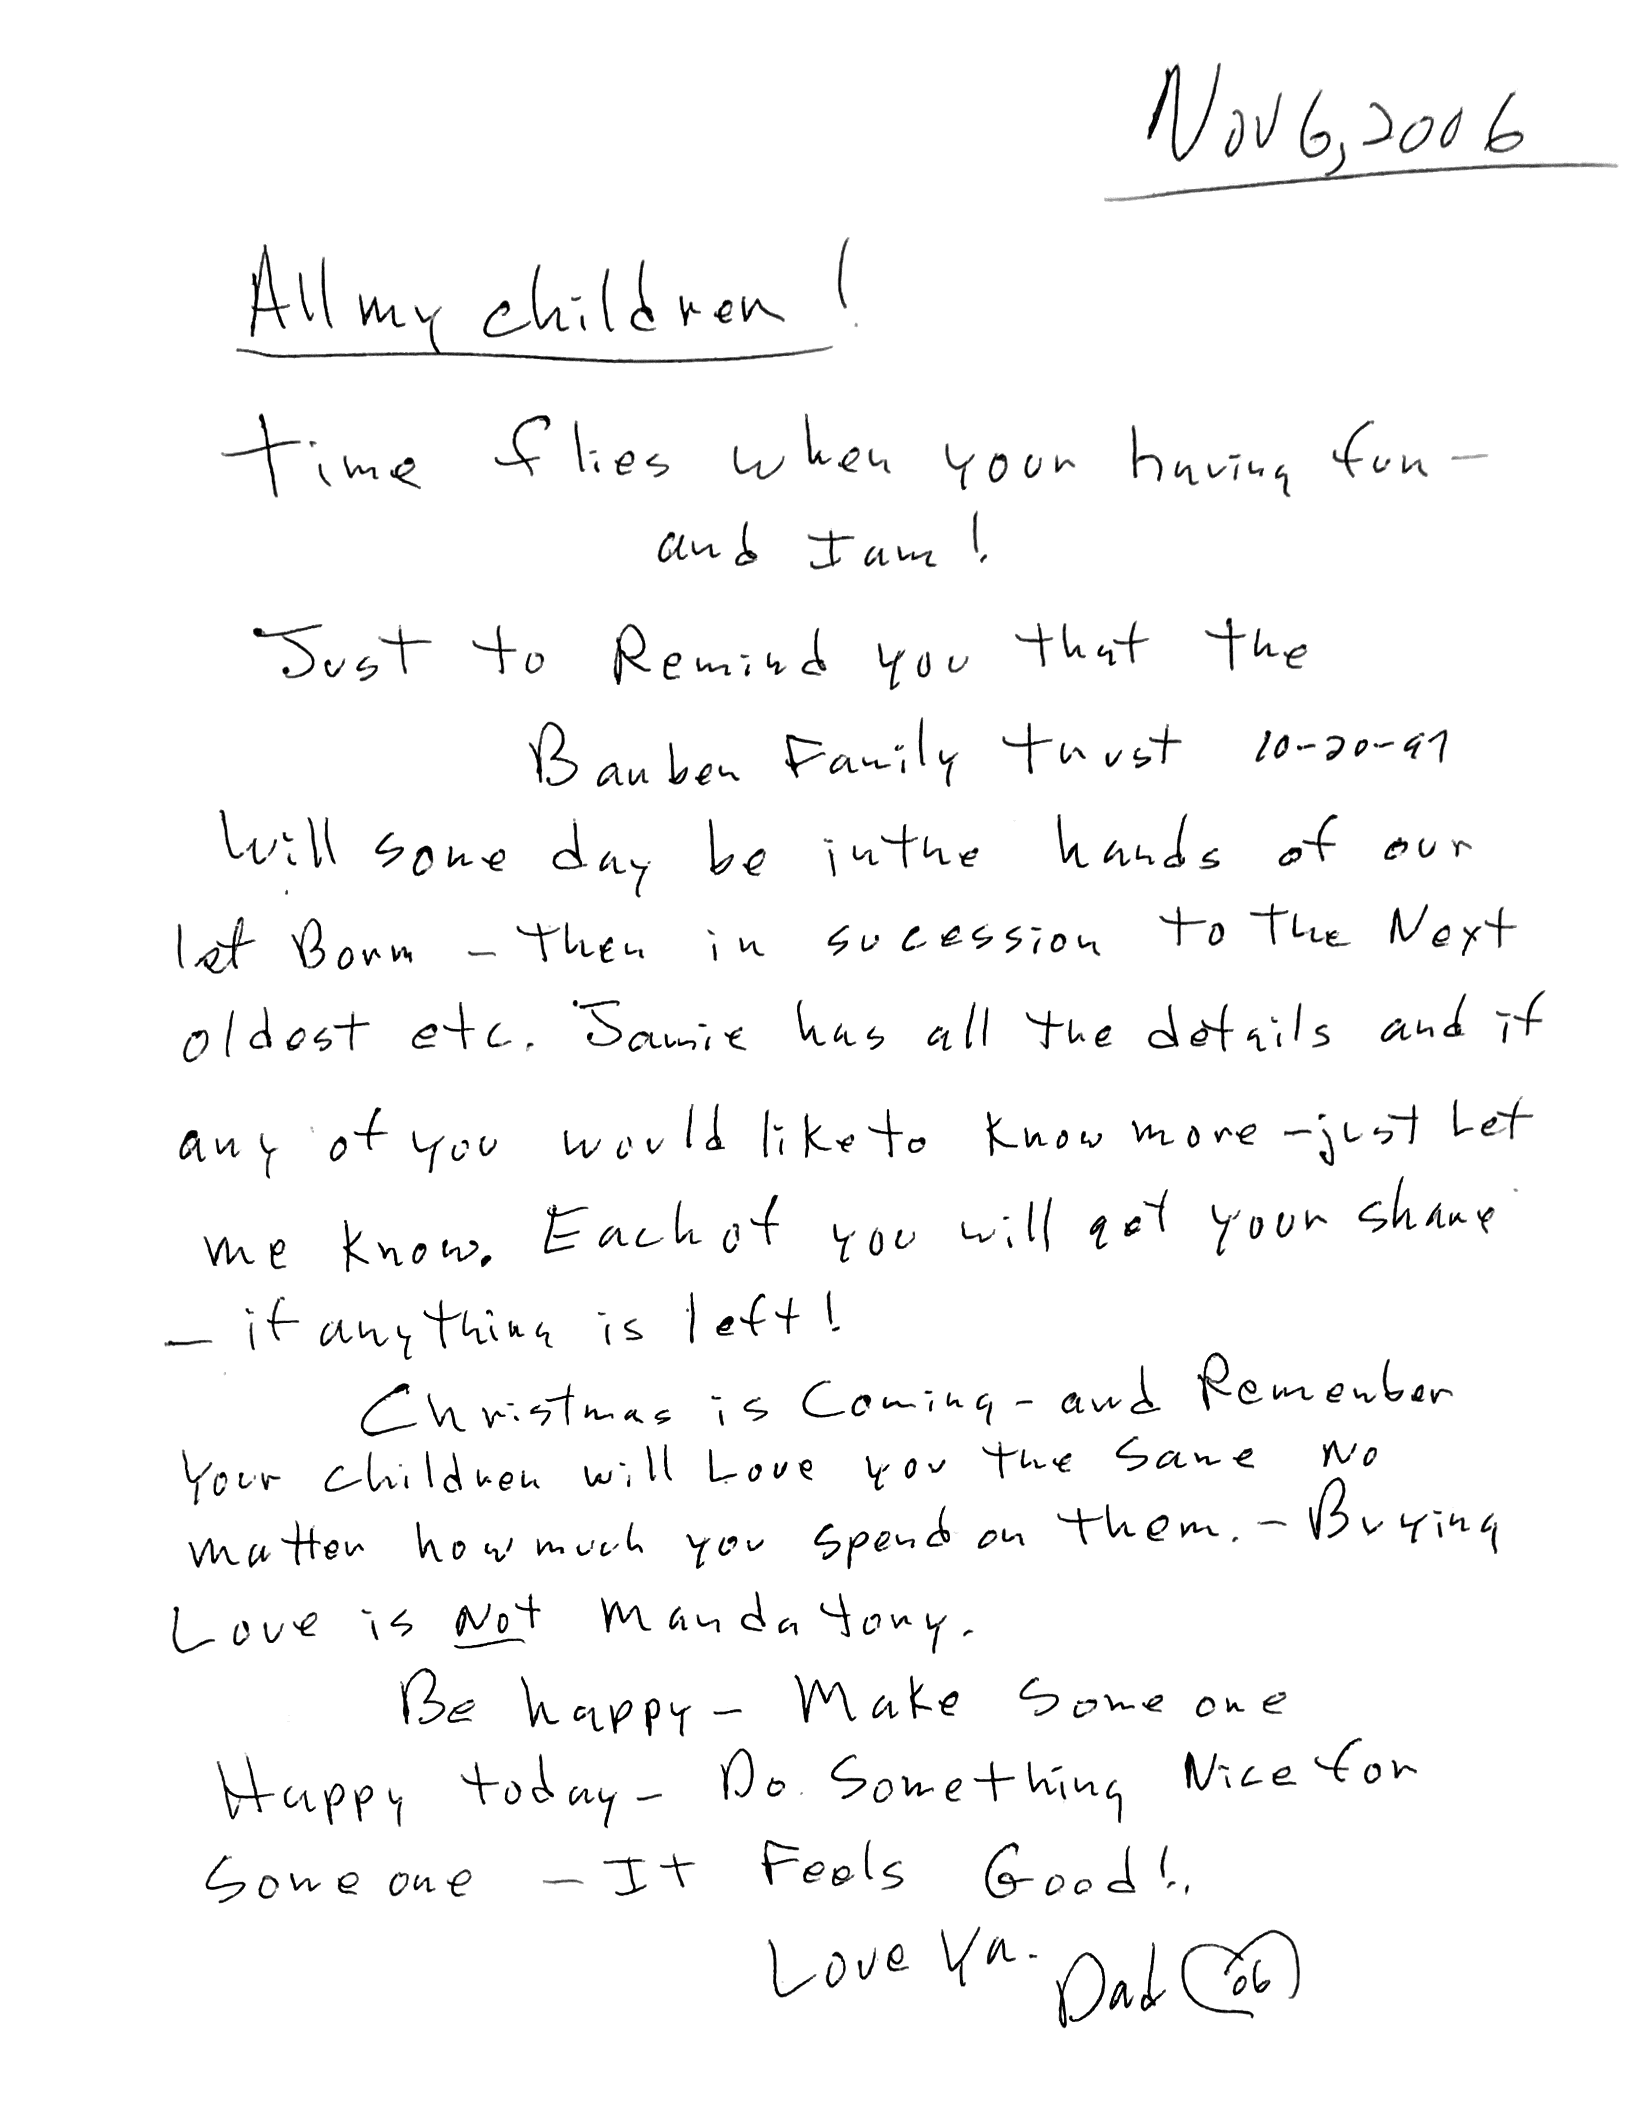 Nov 6, 2006
All my children!
Time flies when your having fun -
and I am!
Just to Remind you that the
Barber Family trust 10-20-97
Will some day be in the hands of our
1st Born - then in sucession to the Next
oldest etc. Jamie has all the details and if
any of you would like to know more - just Let
me know. Each of you will get your share
- if anything is left!
Christmas is Coming - and Remember
Your children will Love you the same no
matter how much you spend on them. - Buying
Love is Not Mandatory.
Be happy - Make Someone
Happy today - Do Something Nice for
Someone - It Feels Good!
Love Ya. Dad '06